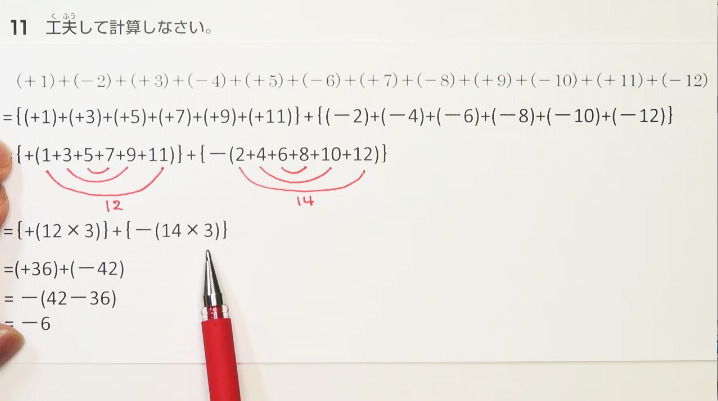 11 工夫して計算しなさい。
くふう
(+1)+(−2)+(+3)+(−4)+(+5)+(−6)+(+7)+(−8)+(+9)+(−10)+(+11)+(−12)
={(+1)+(+3)+(+5)+(+7)+(+9)+(+11)}+{(−2)+(−4)+(−6)+(−8)+(−10)+(−12)}
={+(1+3+5+7+9+11)}+{−(2+4+6+8+10+12)}
12 14
={+(12×3)}+{−(14×3)}
=(+36)+(−42)
= −(42−36)
= −6